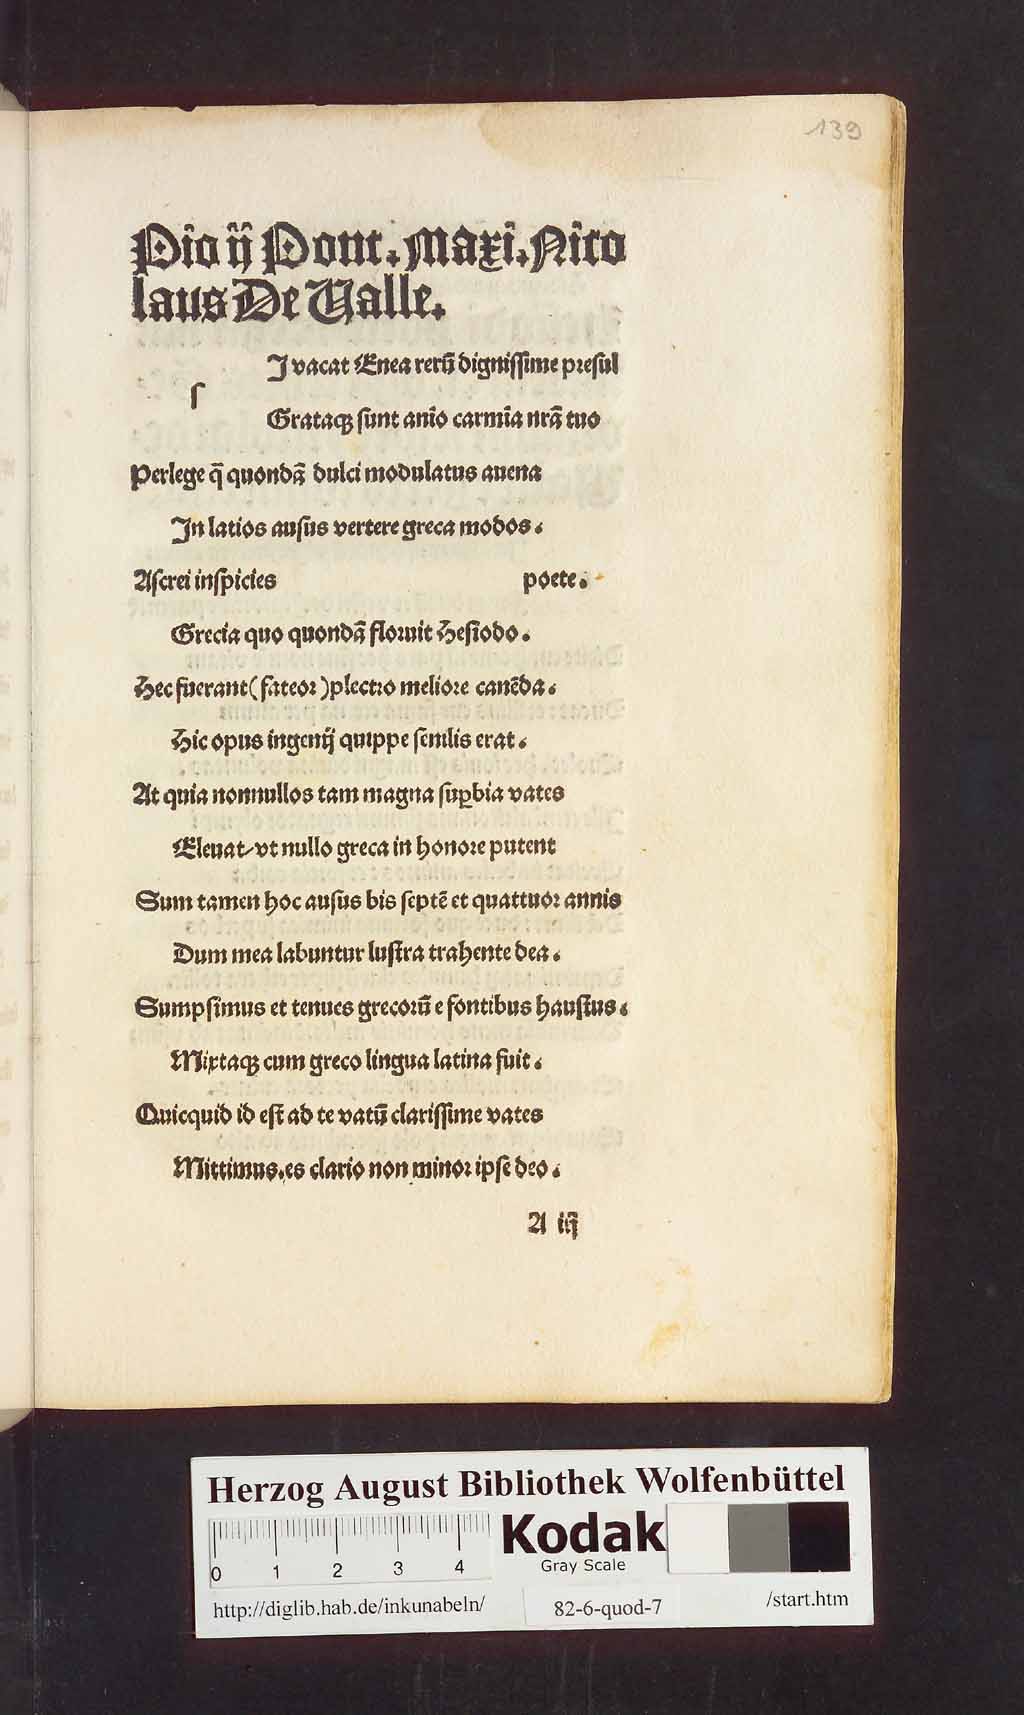 139
Pio ij Pont. Maxi. Nico
laus De Valle.
J vacat Enea rerū dignissime presul
ſ
Grataqꝫ sunt anio carmīa nrā tuo
Perlege q̄ quondā dulci modulatus auena
Jn latios ausus vertere greca modos.
Ascrei inspicies poete.
Grecia quo quondā floruit Hesiodo.
Hec fuerant (fateor) plectro meliore canēda.
Hic opus ingenij quippe senilis erat.
At quia nonnullos tam magna suꝑbia vates
Eleuat/vt nullo greca in honore putent
Sum tamen hoc ausus bis septē et quattuor annis
Dum mea labuntur lustra trahente dea.
Sumpsimus et tenues grecorū e fontibus haustus.
Mixtaqꝫ cum greco lingua latina fuit.
Quicquid id est ad te vatū clarissime vates
Mittimus.es clario non minor ipse deo.
A iij
Herzog August Bibliothek Wolfenbüttel
0 1 2 3 4
Kodak
Gray Scale
http://diglib.hab.de/inkunabeln/ 82-6-quod-7 /start.htm